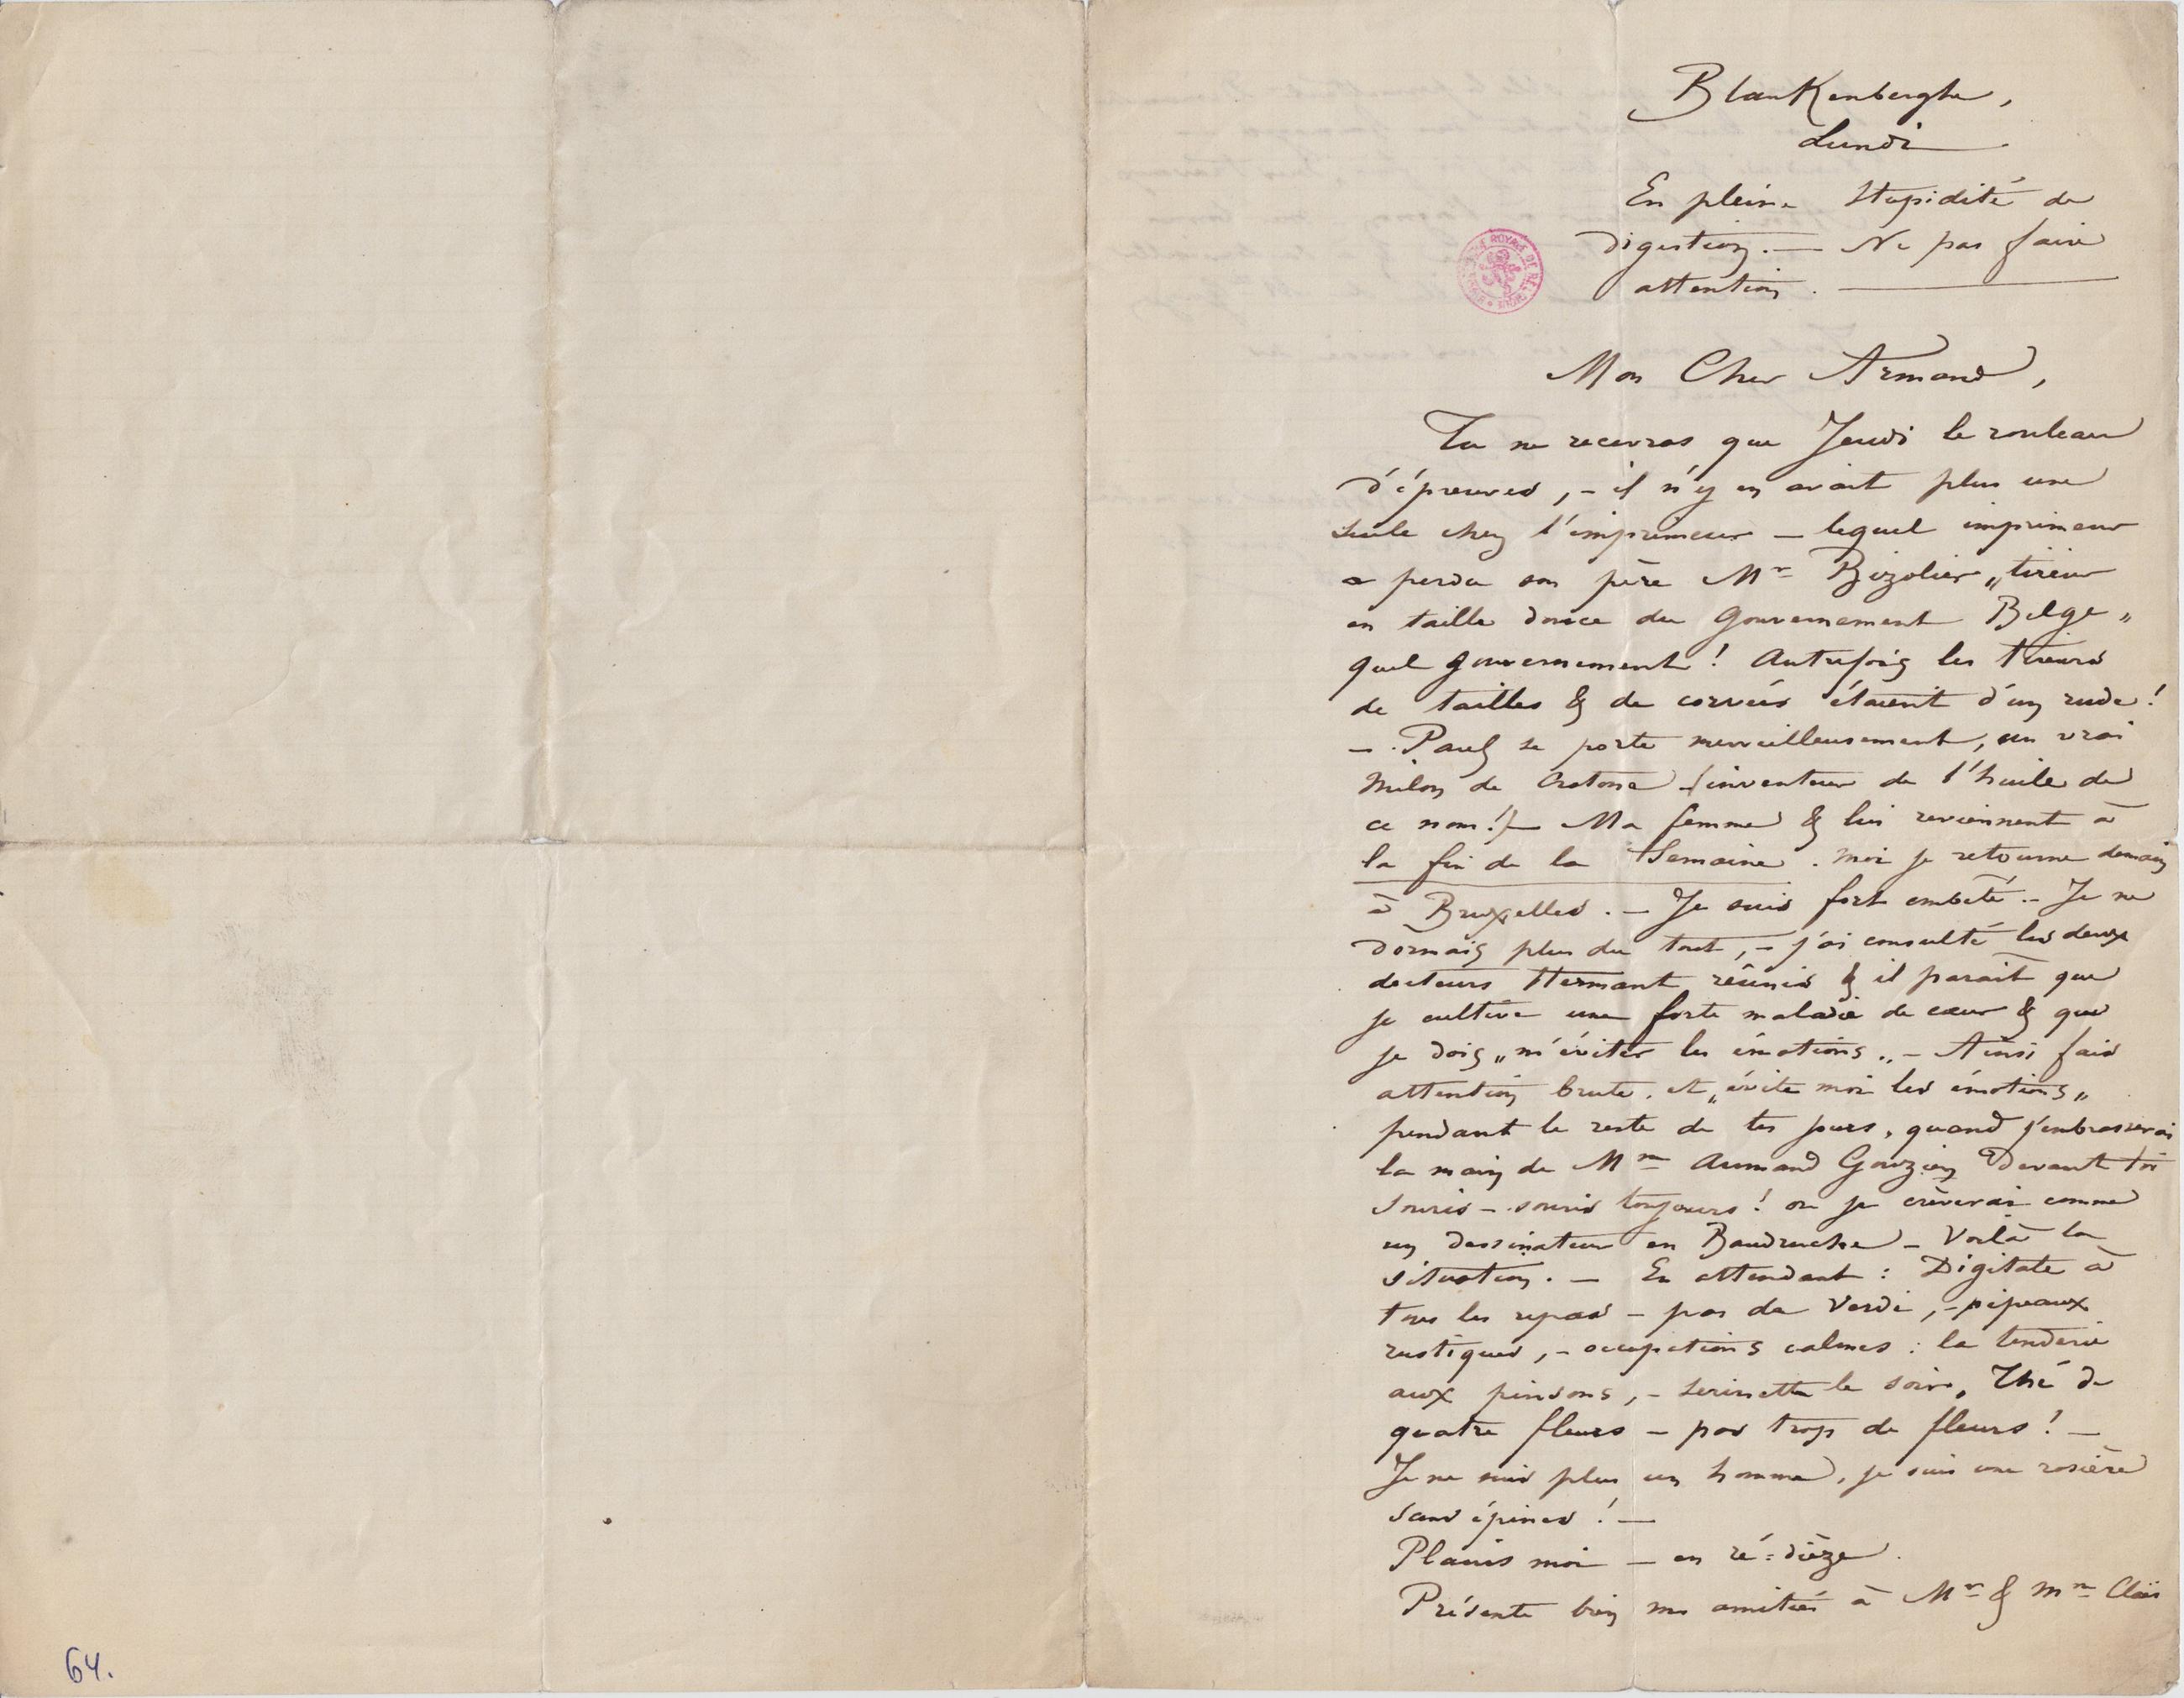 BlanKenberghe,
Lundi
En pleine Stupidité de
digestion. — Ne pas faire
attention. —
Mon Cher Armand,
Tu ne recevras que Jeudi le rouleau
d'épreuves, – il n'y en avait plus une
seule chez l'imprimeur – lequel imprimeur
a perdu son père Mr „tireur
en taille douce du Gouvernement Belge„
quel gouvernement! Autrefois les tireurs
de tailles & de corvées étaient d'un rude!
– Paul se porte merveilleusement, un vrai
Milon de Crotone (inventeur de l'huile de
ce nom!) – Ma femme & lui reviennent à
la fin de la Semaine. moi je retourne demain
à Bruxelles. – Je suis fort embêté. – Je ne
dormais plus du tout, – j'ai consulté les deux
docteurs Hermant réunis & il parait que
je cultive une forte maladie de cœur & que
je dois „m'éviter les émotions„ – Ainsi fais
attention brute, et „évite moi les émotions„
pendant le reste de tes jours, quand j'embrasserai
la main de Mme Armand Gouzien devant toi
souris – souris toujours! ou je crèverai comme
un dessinateur en Baudruche – Voilà la
situation. – En attendant: Digitale à
tous les repas – pas de Verdi, – pipeaux
rustiques, – occupations calmes: la tenderie
aux pinsons, – serinette le soir, Thé de
quatre fleurs – pas trop de fleurs! –
Je ne suis plus un homme, je suis une rosière
sans épines! –
Plains moi – en ré=dièze.
Présente bien mes amitiés à Mr & Mme Claïs
64.